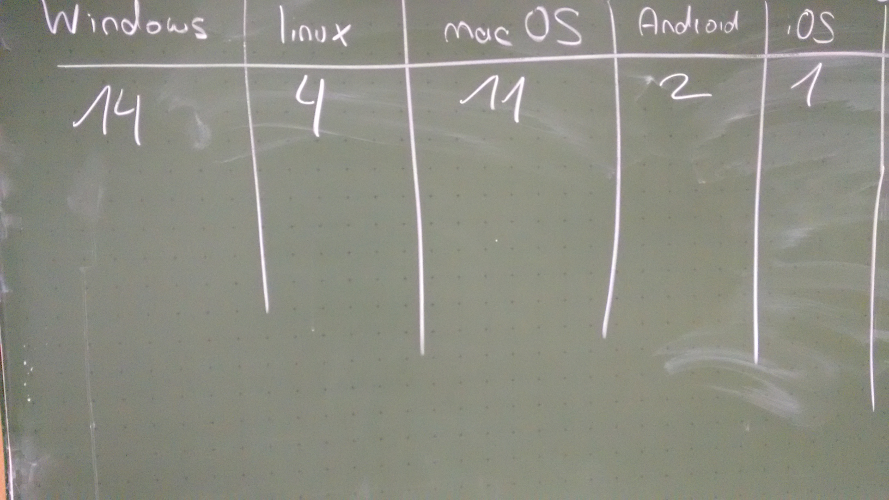 Windows linux mac OS Android iOS
14 4 11 2 1